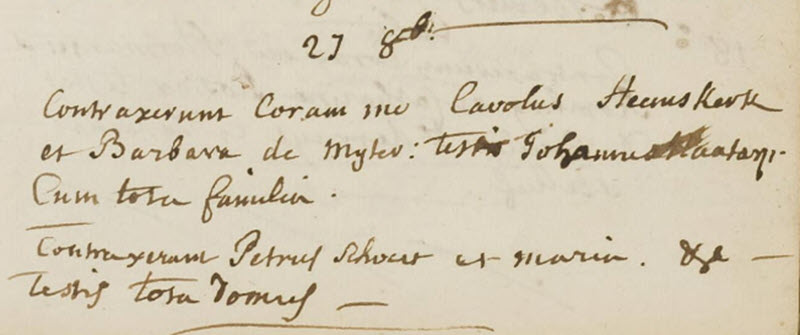 27 8cb:
Contraxerunt Coram me Carolus Heemskerk
et Barbara de Myter: testis Johannes
Cum tota familia.
Contraxerant Petrus Schout et maria. &c —
Testis tota Domus —